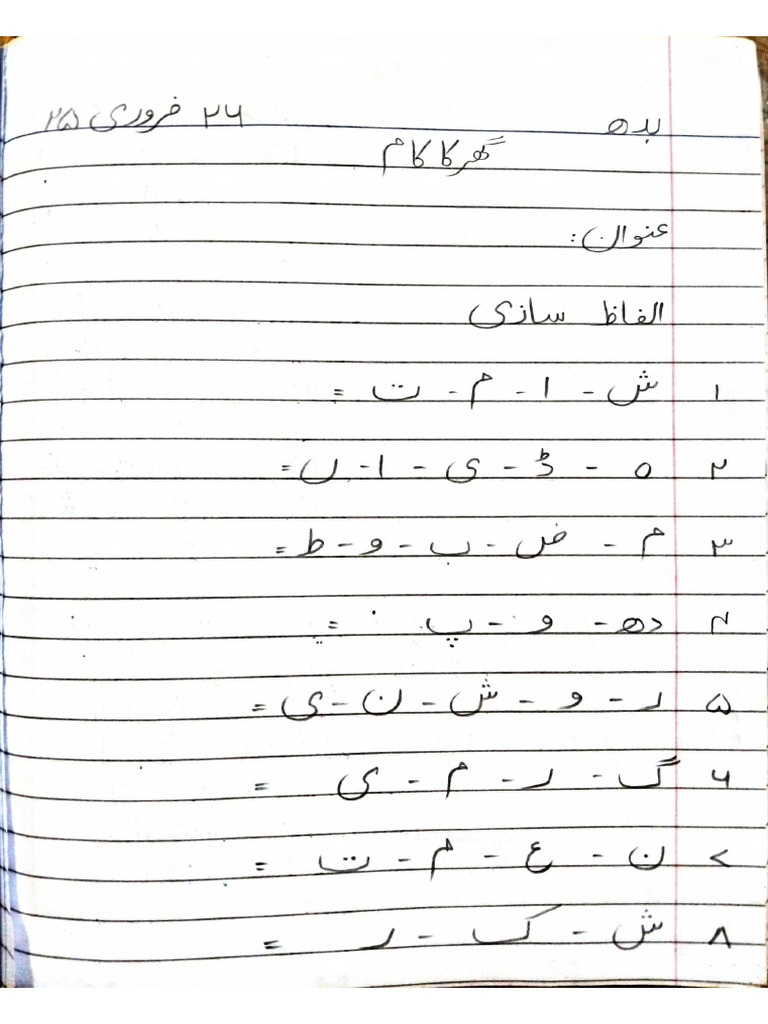 بدھ ۲۶ فروری ۲۵
گھر کا کام
عنوان:
الفاظ سازی
۱ ش - ا - م - ت =
۲ ہ - ڈ - ی - ا - ں =
۳ م - ض - ب - و - ط =
۴ دھ - و - پ =
۵ ر - و - ش - ن - ی =
۶ گ - ر - م - ی =
۷ ن - ع - م - ت =
۸ ش - ک - ر =